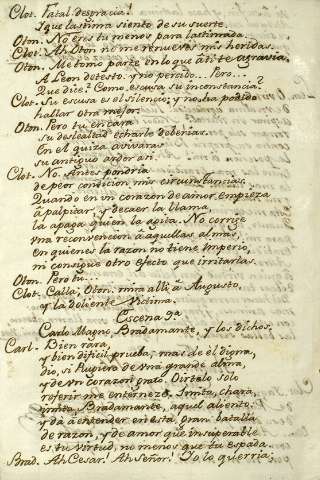 Clot. Fatal desgracia!
Y que lastima siento de su suerte.
Oton. No eres tu menos para lastimada.
Clot. Ah Oton no me renueves mis heridas.
Oton. Me tomo parte en lo que á ti te agravia.
A Leon detesto. y no percibo... Pero...
Que dice? Como escusa su inconstancia?
Clot. Su escusa es el silencio; y no ha podido
hallar otra mejor.
Oton. Pero tu en cara
su deslealtad echarle deberias.
En el quiza avivaras
su antiguo ardor asi.
Clot. No. Antes pondria
de peor condicion mis circunstancias.
Quando en un corazon de amor empieza
á palpitar, y decaer la llama
la apaga quien la agita. No corrige
una reconvencion á aquellas almas,
en quienes la razon no tiene imperio,
ni consigue otro efecto que irritarlas.
Oton. Pero tu...
Clot. Calla, Oton: mira alli á Augusto,
y la doliente victima.
Escena 9ª
Carlo Magno, Bradamante, y los dichos,
Carl. Bien rara,
y bien dificil prueba, mas de él digna,
dio, si Rugiero de una grande alma,
y de un corazon grato. Oirtelo solo
referir me enternece. Imita, chara,
imita Bradamante, aquel aliento:
y dá á entender en esta gran batalla
de razon, y de amor que insuperable
es tu virtud, no menos que tu espada.
Brad. Ah Cesar! Ah Señor! Yo lo querria;